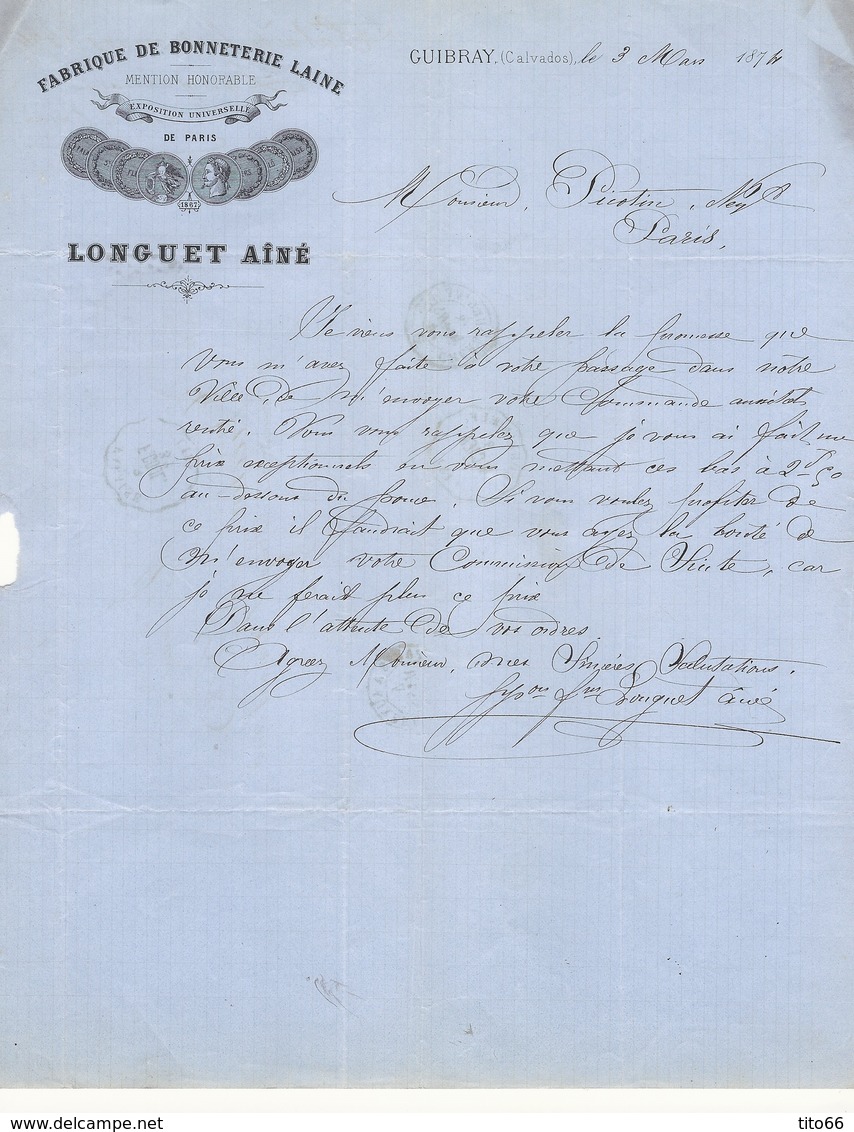 FABRIQUE DE BONNETERIE LAINE
MENTION HONORABLE
EXPOSITION UNIVERSELLE
DE PARIS
1867
LONGUET AÎNÉ
GUIBRAY, (Calvados), le 3 Mars 1874
Monsieur, Picotin, Negt
Paris,
Je viens vous rappeler la promesse que
vous m'avez faite à votre passage dans notre
Ville, de m'envoyer votre Commande aussitôt
rentré. Vous vous rappelez que je vous ai fait un
prix exceptionnels en vous mettant ces bas à 2f 50
au-dessous du pouce. Si vous voulez profiter de
ce prix il faudrait que vous ayez la bonté de
m'envoyer votre Commission de Suite, car
je ne ferait plus ce prix
Dans l'attente de vos ordres
Agréez Monsieur, mes Sincères Salutations.
Longuet âiné
delcampe.net
tito66